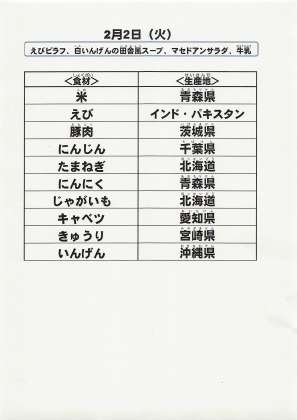 2月2日（火）
えびピラフ、白いんげんの田舎風スープ、マセドアンサラダ、牛乳
＜食材＞ ＜生産地＞
米 青森県
えび インド・パキスタン
豚肉 茨城県
にんじん 千葉県
たまねぎ 北海道
にんにく 青森県
じゃがいも 北海道
キャベツ 愛知県
きゅうり 宮崎県
いんげん 沖縄県